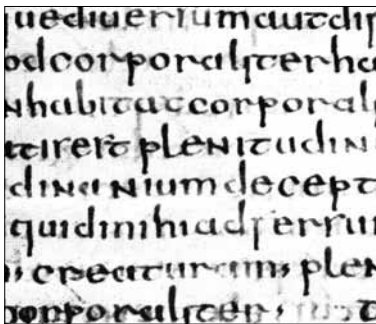 uediuersumautdis
odcorporaliterha
nhabitatcorporali
plenitudin
dinanium decept
quidinihiadferru
creaturam, plen
corporaliter